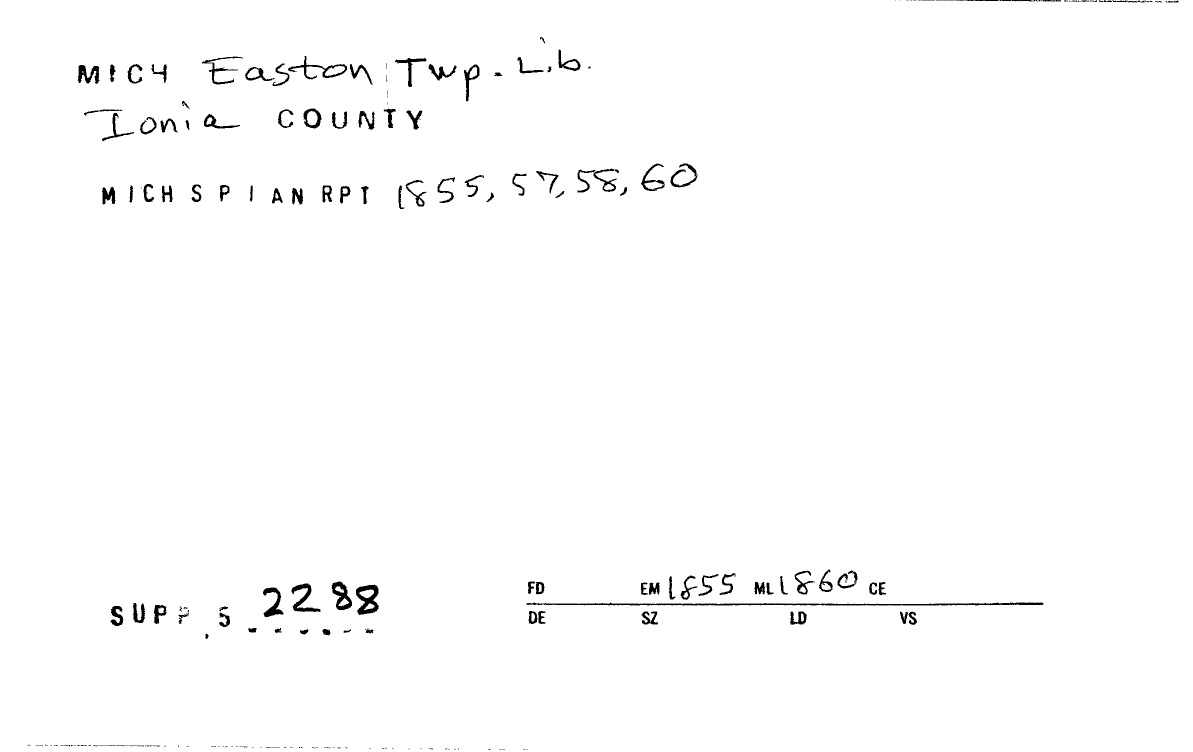 MICH Easton Twp. Lib.
Ionia COUNTY
MICH S P I AN RPT 1855, 57, 58, 60
SUPP. 5 2288
FD EM 1855 ML 1860 CE
DE SZ LD VS